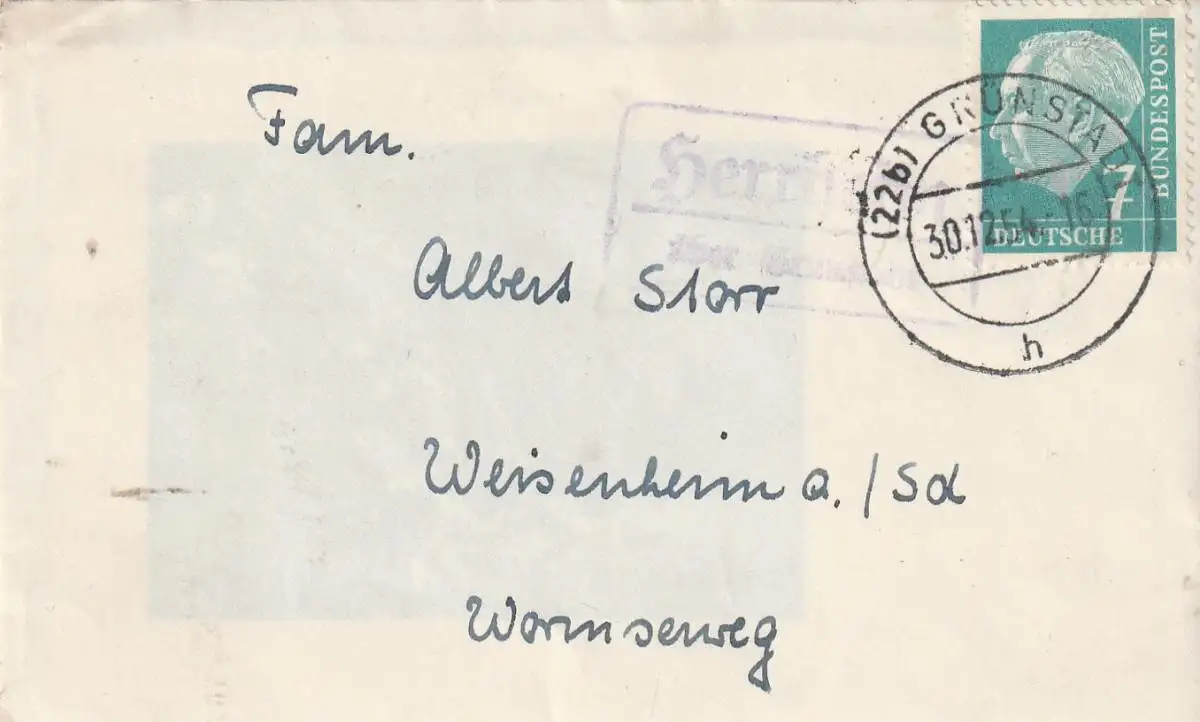 Fam.
Albert Storr
Weisenheim a./Sd
Wormserweg
(22b) GRÜNSTADT
30.12.54.-16
h
7
DEUTSCHE
BUNDESPOST
über